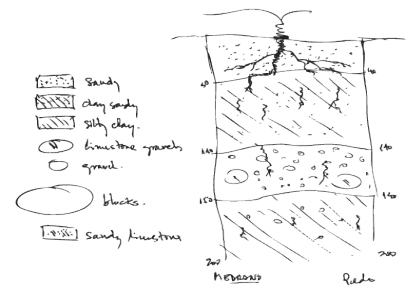 Sandy
clay sandy
silty clay.
limestone gravels
gravel.
blocks.
sandy limestone
40
40
140
140
150
150
200
200
MEDRANO